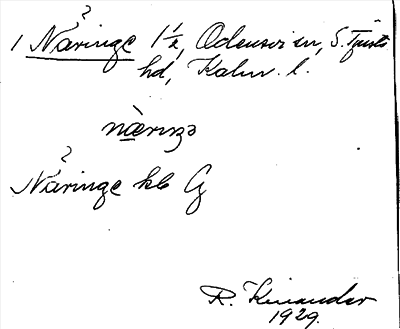 ?
1 Näringe 1½, Odensvi sn, S. Tjusts
hd, Kalm. l.
nærŋə
?
Näringe hb G
R. Kinander
1929.